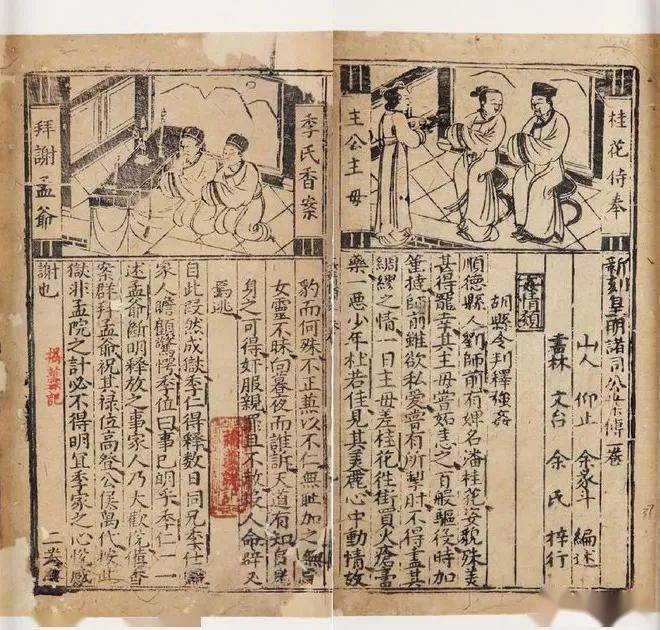 桂花侍奉
主公主母
新刻皇明諸司公案傳一卷
山人 仰止 余象斗 編述
書林 文台 余氏 梓行
情類
胡縣令判釋強姦
順德縣人劉師前有婢名潘桂花姿貌殊美
甚得寵幸其主母嘗妬恚之百般驅役時加
箠撻師前雖欲私愛嘗有所掣肘不得盡其
綢繆之情一日主母差桂花往街買火瘡膏
藥一惡少年杜若佳見其美麗心中動情故
季氏香案
拜謝孟爺
豹而何殊不正兼以不仁無恥加之無
女靈不昧向暮夜而誰訴天道有知
身之可得奸服親罪且不敢人命辟又
焉逃
自此段然成獄季仁得釋數日同兄季仕
家人瞻顧驚愕季位曰事已明乎季仁一一
述孟爺斷明釋放之事家人乃大歡忻備香
案群拜孟爺祝其祿位高登公侯萬代按此
獄非孟院之計必不得明宜季家之心悅感
謝也
二卷